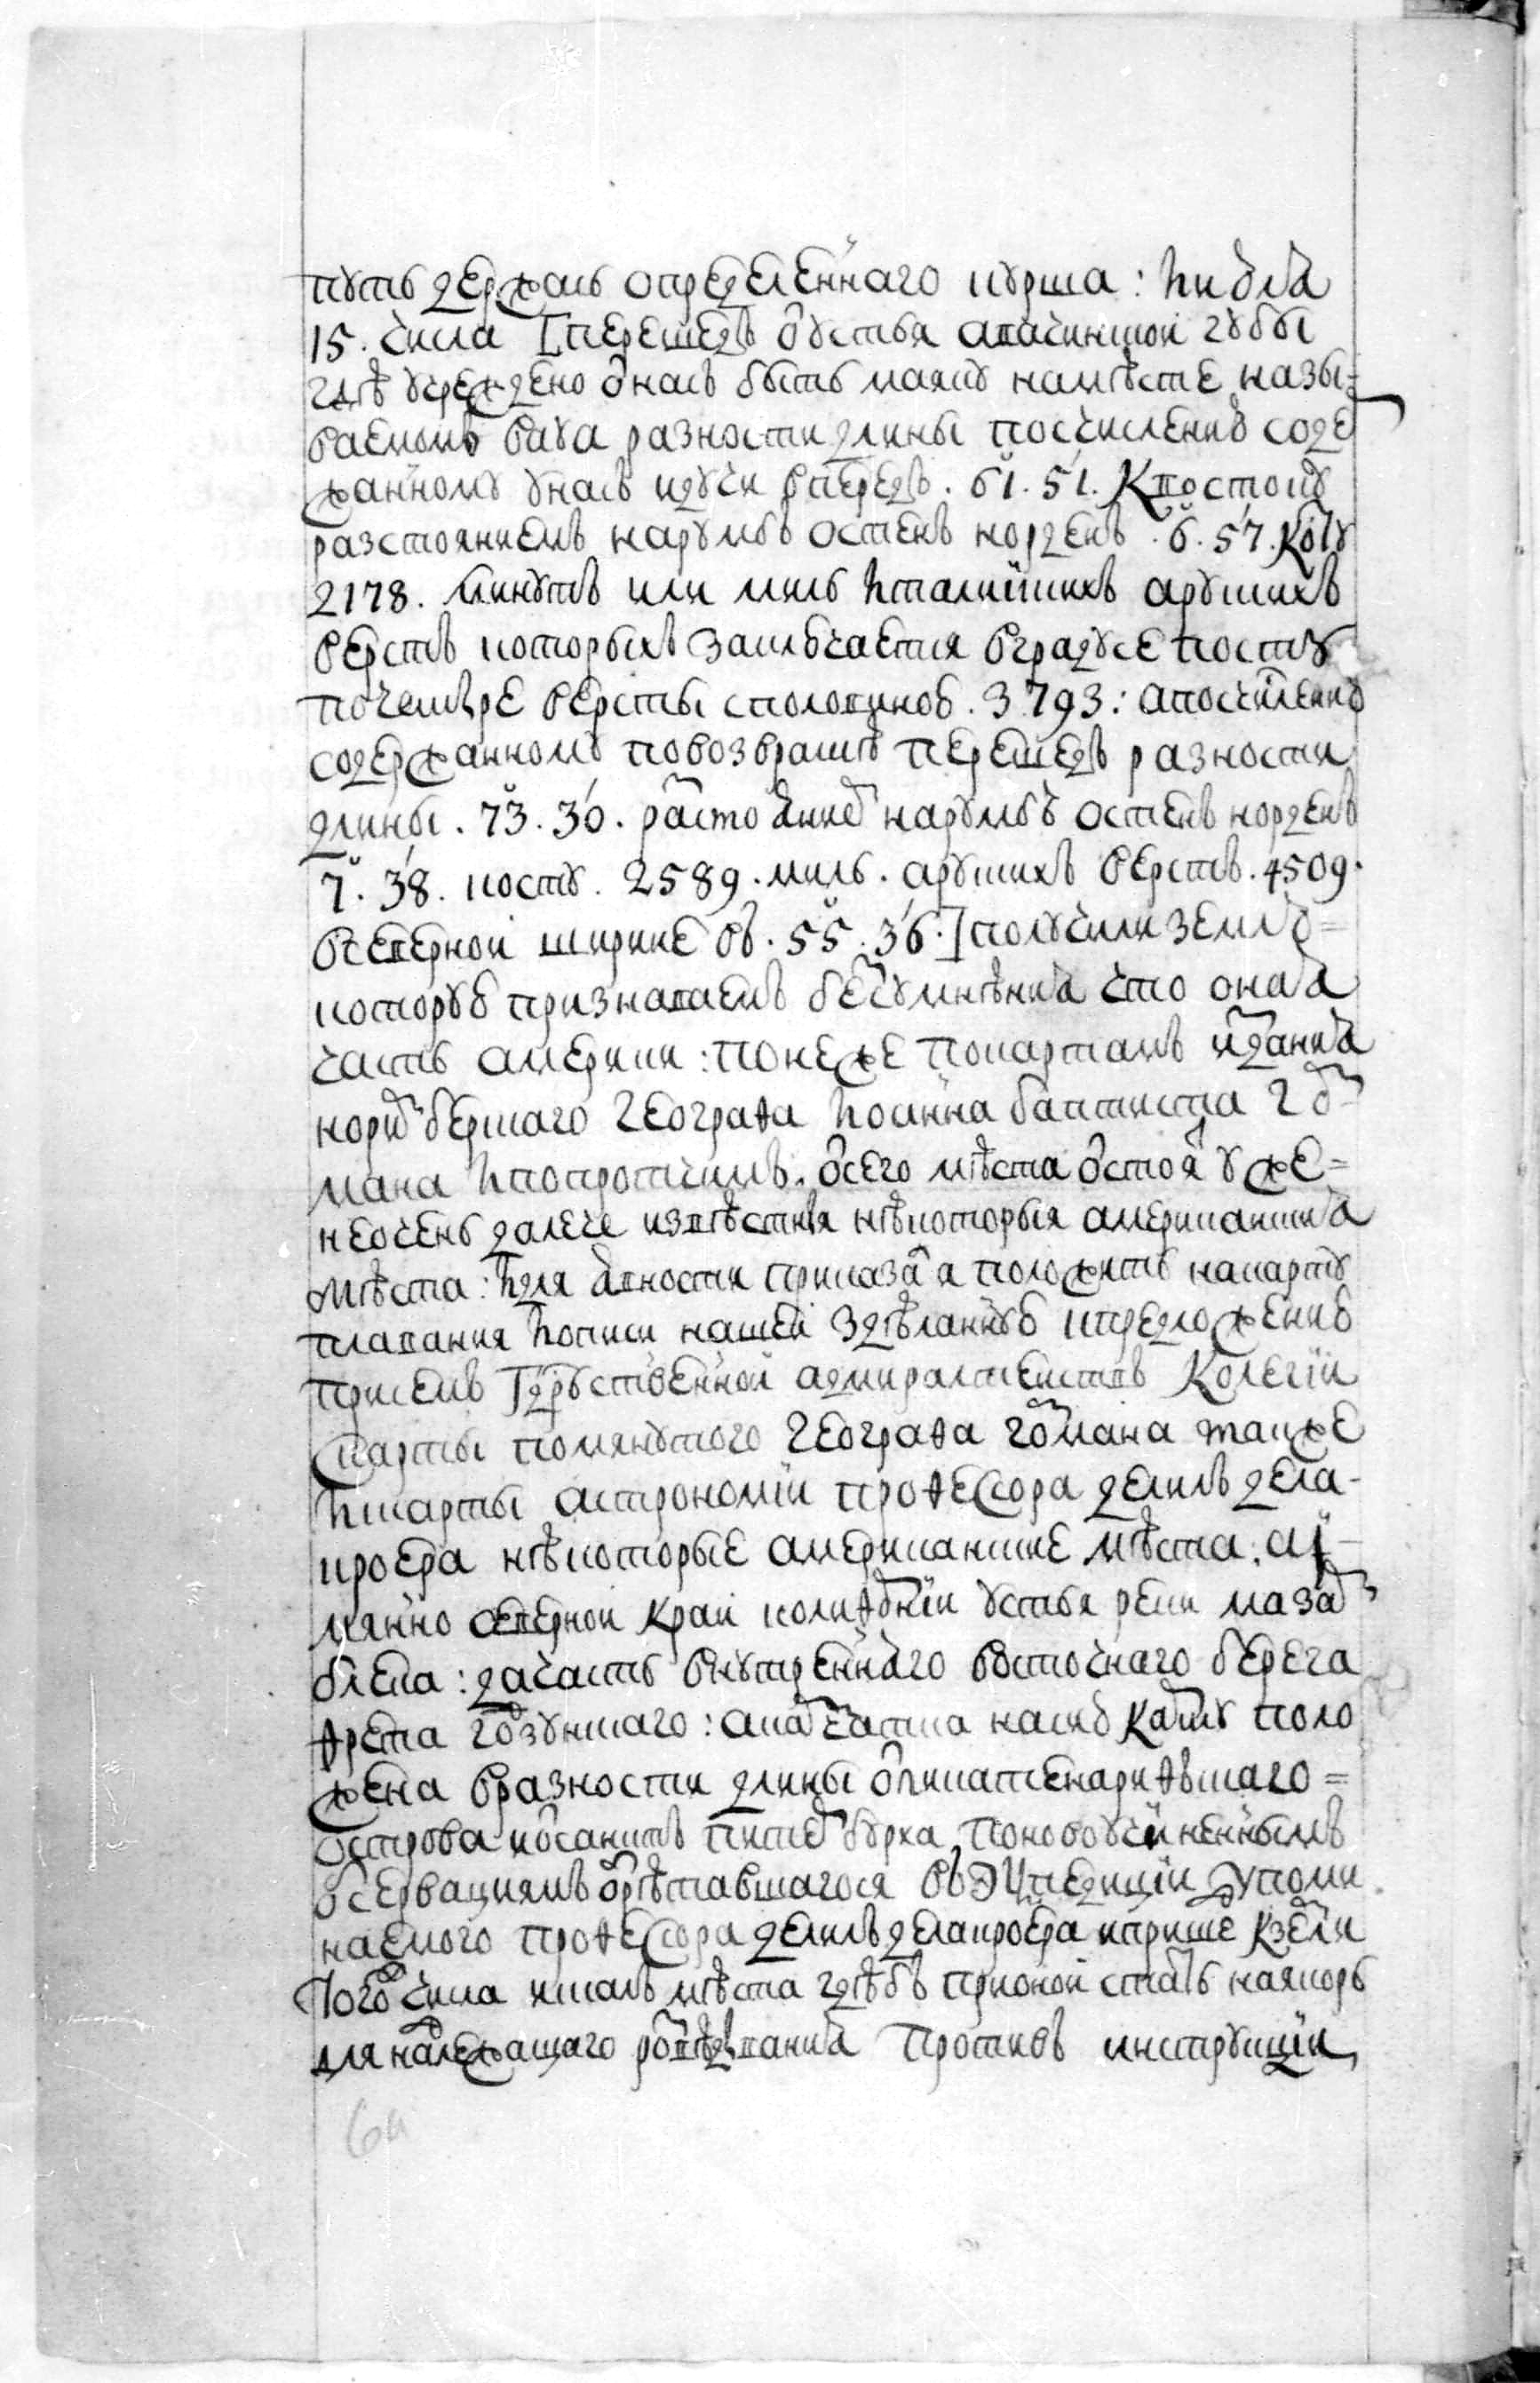 путь держась определеннаго курша: и июля
15. числа [перешедъ от устья авачинской губы
гдѣ учреждено от насъ быть маяку на мѣсте назы=
ваемомъ вауа разности длины по счислению содер
жанному у насъ идучи впередъ. 61°. 51′. К простому
разстояниемъ на румбъ остенъ норденъ. 6°. 57′. Косту
2178. минутъ или миль италиískихъ а рускихъ
верстъ которыхъ заключается в градусе по сту
по четыре версты с половиною. 3793: а по счислению
содержанному по возвратѣ перешедъ разности
длины. 73°. 30′. растояние на румбъ остенъ норденъ
7°. 38′. косту. 2589. миль. а рускихъ верстъ. 4509.
в северной ширине въ. 55°. 36′.] получили землю=
которую признаваемъ без сумнѣния что оная
часть америки: понеже по картамъ издания
норинбергскаго географа иоанна баптиста го
мана и по протчимъ. от сего мѣста отстоят уже=
не очень далече извѣстныя нѣкоторыя американския
мѣста: и для явности приказал я положить на карту
плавания и описи нашей здѣланную и предложению
при семъ Государственной адмиралтейств Колегии
с карты помянутого географа гомана также
и с карты астрономии професора делиль дела-
кроера нѣкоторые американские мѣста: а и-
мянно северной край калифорнии устья реки маза
блева: да часть внутреннаго восточнаго берега
фрета гудзунскаго: а камчатка на сию карту поло
жена в разности длины от пикатенарифскаго=
острова и от санктъ питербурха по новоучиненнымъ
обсервациямъ обрѣтавшагося въ Экспедиции упоми
наемого професора делиль делакроера и пришед к земли
того числа искалъ мѣста гдѣбъ при оной стать на якорь
для надлежащаго розвѣдывания противъ инструкции